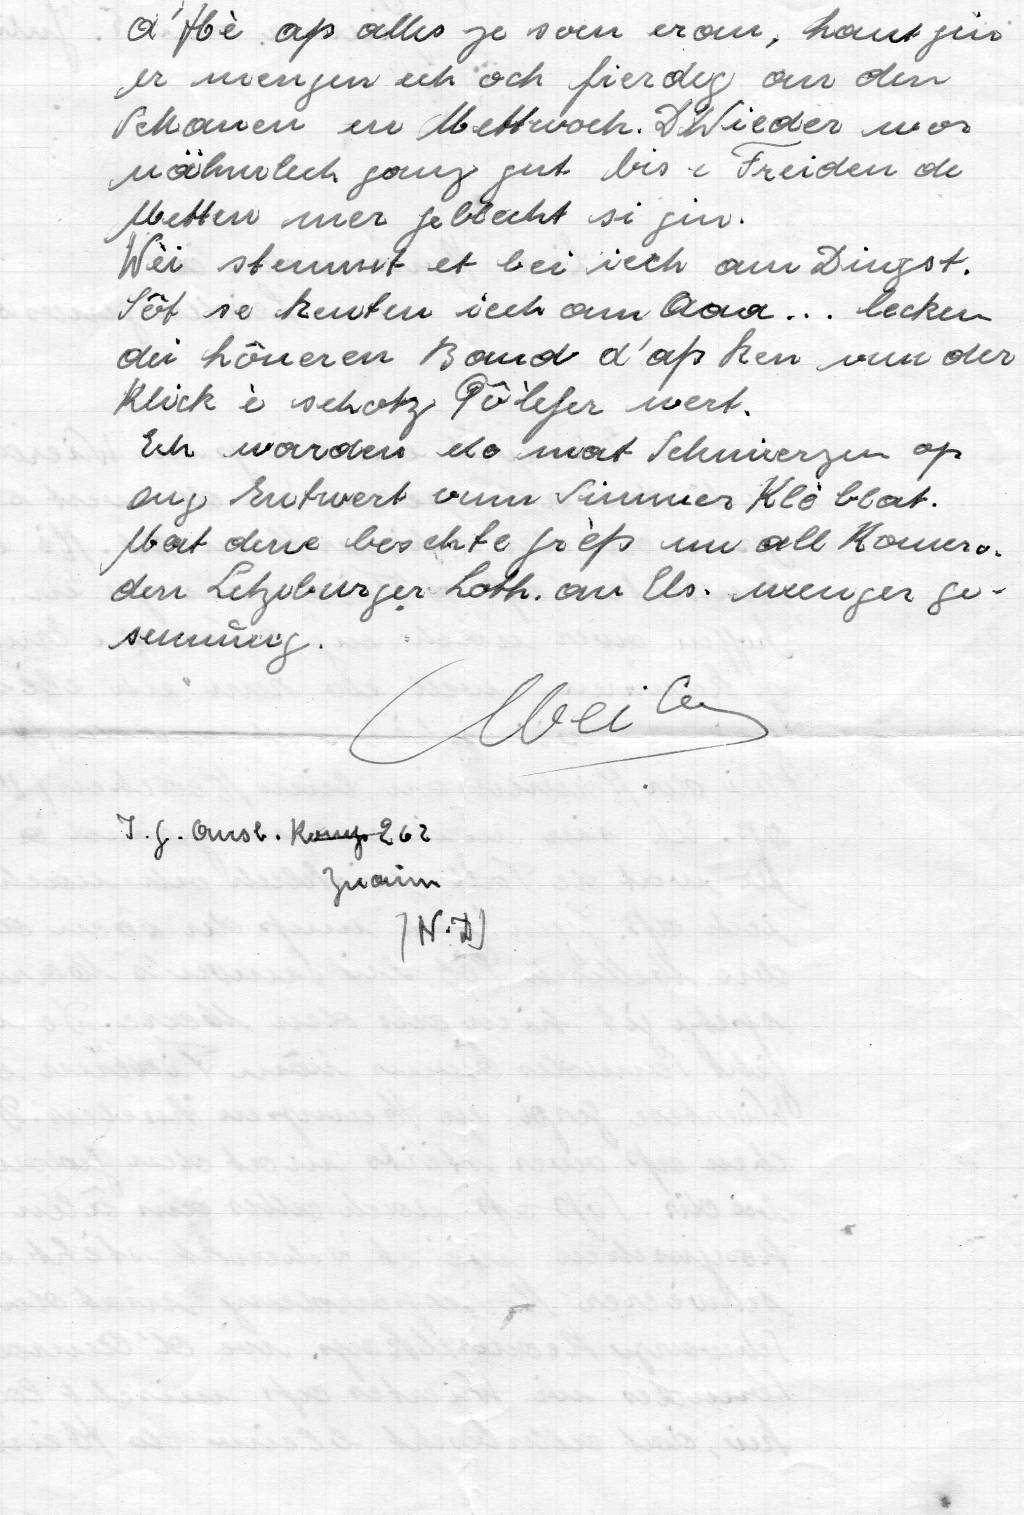 d'Hè ass alles ze soen eran, haut gin
er mengen ech och fierdeg an den
Schanen en Mettwoch. D'Wieder wor
nähmlech ganz gut bis e Freiden de
Metten mer geblecht si gin.
Wèi stemmt et bei iech am Dingst.
Söt se kenten iech am Aaa... lecken
dei hôneren Band d'ass ken vun der
Klick è schotz Pôlefer wert.
Ech warden elo mat Schmerzen op
eng Entwert vum Simmes Klèblat.
Mat dene beschte grèss un all Komero-
den Letzeburger Loth. an Els. menger ge-
sennung.
J. g. Ausb. Komp 262
Znaim
(N.D)